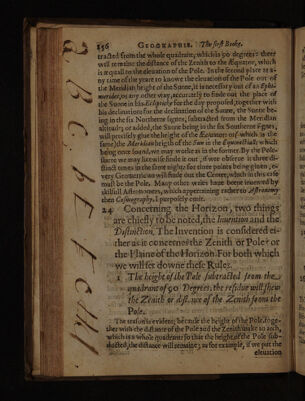 156 GEOGRAPHIE. The first Booke.
tracted from the whole quadrate, which is 90 degrees: there
will remaine the distance of the Zenith to the Æquator, which
is æquall to the elevation of the Pole. In the second place at a-
ny time of the yeare to knowe the elevation of the Pole out of
the Meridian height of the Sunne, it is necessary out of an Ephi-
merides, or any other way, accurately to finde out the place of
the Sunne in his Eclipticke for the day proposed, together with
his declination: for the declination of the Sunne, the Sunne be-
ing in the six Northerne signes, subtracted from the Meridian
altitude; or added, the Sunne being in the six Southerne signes,
will precisely give the height of the Æquator: of which is the
same) the Meridian height of the Sun in the Equinoctiall; which
being once found, we may worke as in the former. By the Pole-
starre we may likewise finde it out, if wee observe it three di-
stinct times in the same night: for three points being given, e-
very Geometrician will finde out the Center, which in this case
must be the Pole. Many other waies have beene invented by
skilfull Astronomers, which appertaining rather to Astronomy
then Cosmography, I purposely omit.
24 Concerning the Horizon, two things
are chiefly to be noted, the Invention and the
Distinction. The Invention is considered ei-
ther as it concernes the Zenith or Pole: or
the Plaine of the Horizon. For both which
we will set downe these Rules.
1 The height of the Pole subtracted from the
quadrant of 90 Degrees, the residue will shew
the Zenith or distance of the Zenith from the
Pole.
The reason is evident; because the height of the Pole, toge-
ther with the distance of the Pole and the Zenith make an arch,
which is a whole quadrant: so that the height of the Pole sub-
ducted, the distance will remaine; as for example, if we put the
elevation